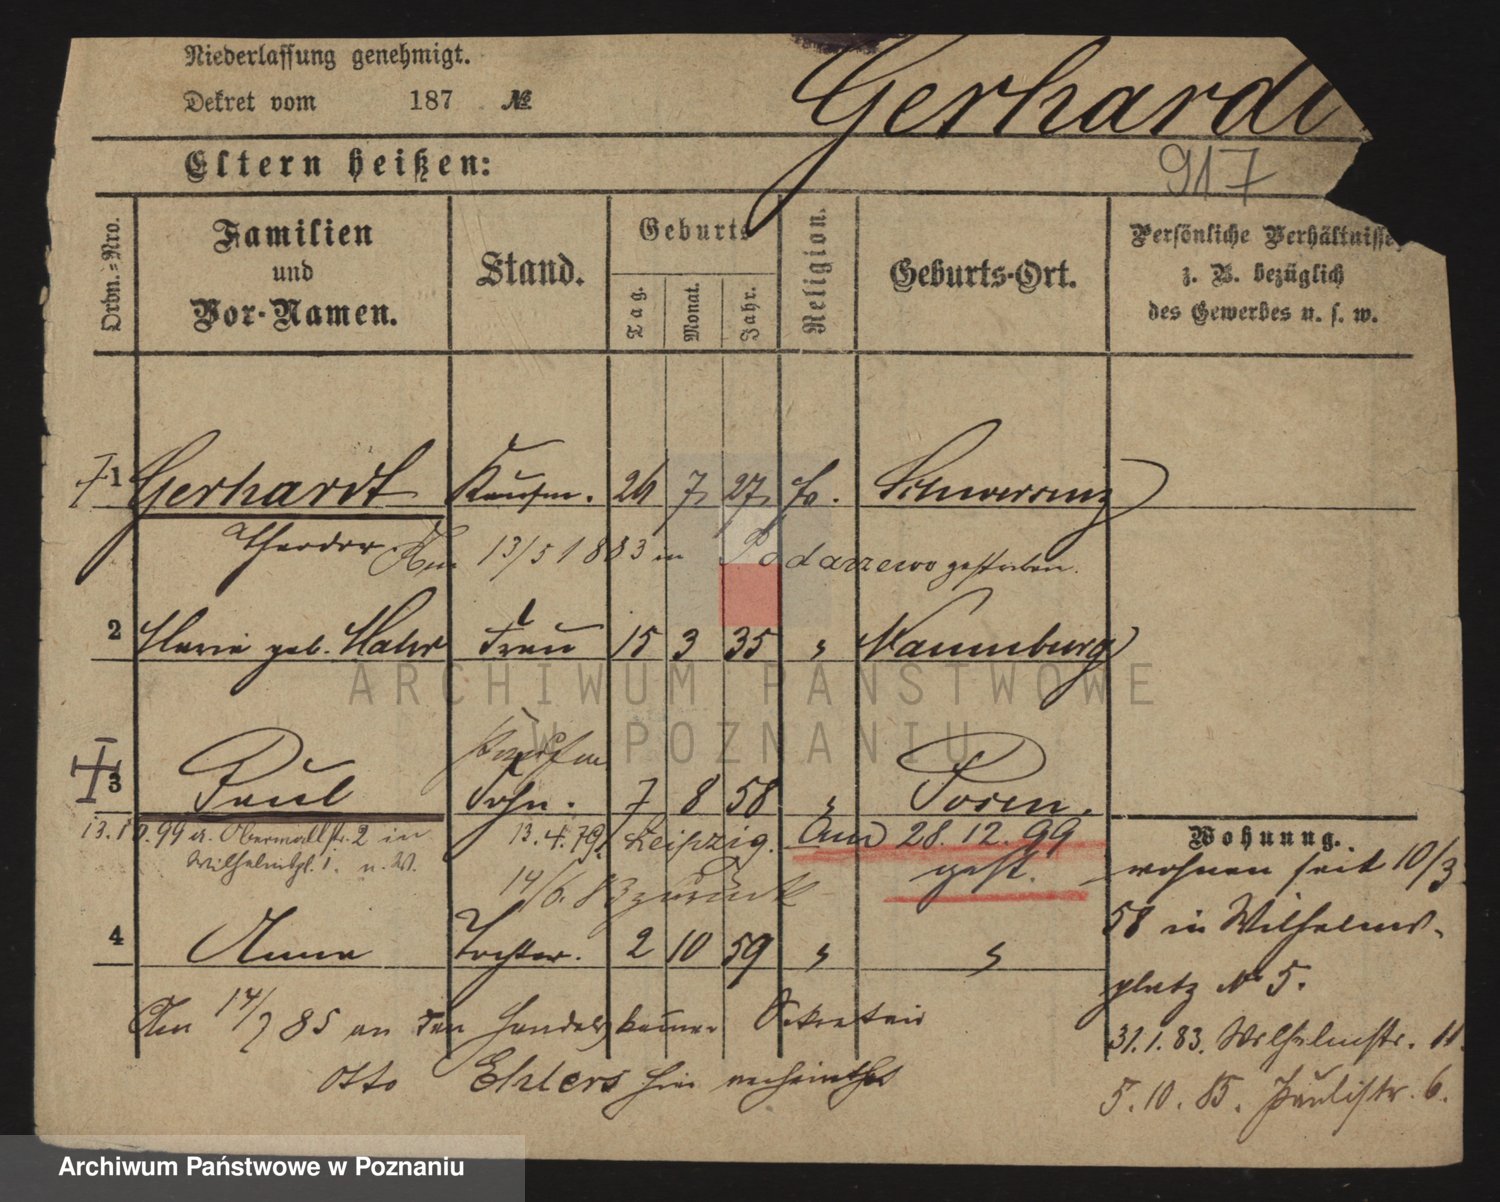 Niederlassung genehmigt.
Dekret vom 187 №
Gerhardt
917
Eltern heißen:
Ordn.=Nro.
Familien und Vor-Namen.
Stand.
Geburts
Tag.
Monat.
Jahr.
Religion.
Geburts-Ort.
Persönliche Verhältnisse,
z. B. bezüglich
des Gewerbes u. s. w.
1 Gerhardt Kaufm. 26 7 27 ev. Schwersenz
Theodor Am 13/5 1883 in Podarzewo gestorben.
2 Marie geb. Frau 15 3 35 " Naumburg
Kaufm
3 Paul Sohn. 7 8 58 " Posen.
13.10.99 a. Obermallstr. 2 in 13.4.79. Leipzig. Am 28.12.99
Wilhelmspl. 1. u. W. gest.
14/6. 83 zurück
4 Anna Tochter. 2 10 59 " "
Am 14/7 85 an den Handelskammer Sekretair
Otto Ehlers hier verheirathet
Wohnung.
wohnen seit 10/3
58 in Wilhelms-
platz No 5.
31.1.83. Wilhelmstr. 11.
5.10.85. Paulistr. 6.
ARCHIWUM PAŃSTWOWE
W POZNANIU
Archiwum Państwowe w Poznaniu